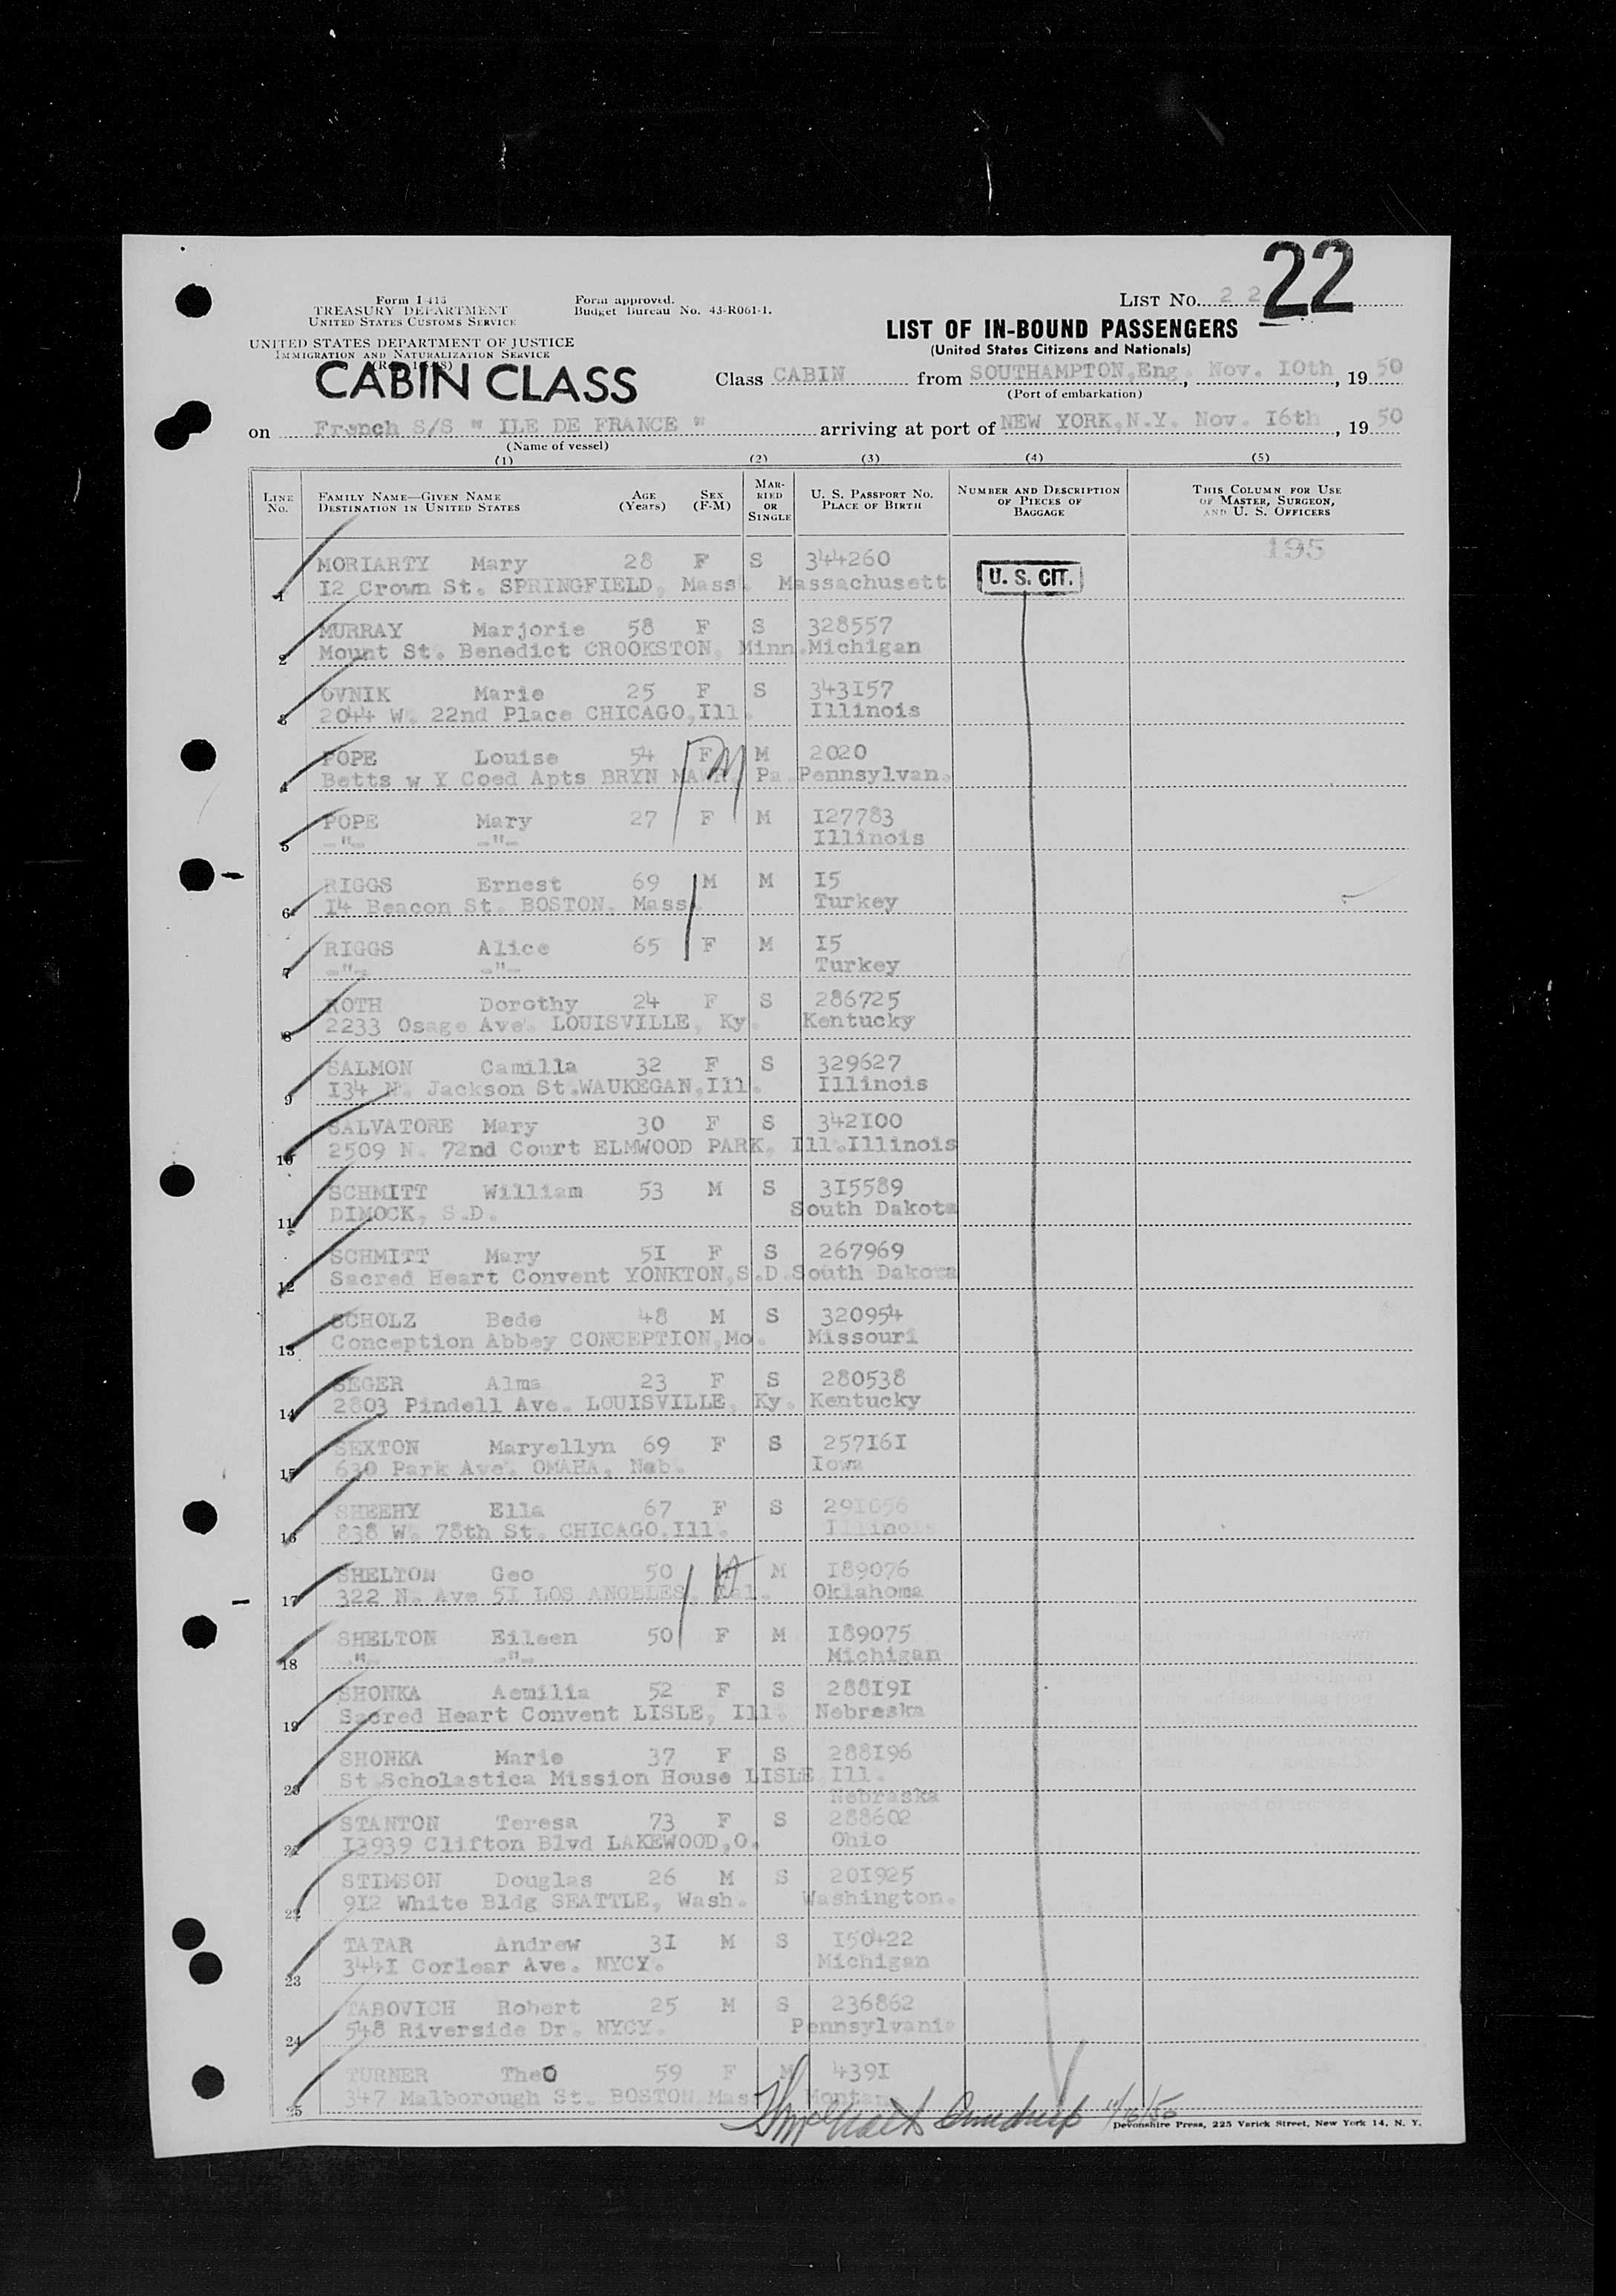 22
Form I-415
TREASURY DEPARTMENT
UNITED STATES CUSTOMS SERVICE
Form approved.
Budget Bureau No. 43-R061-1.
LIST NO. 22
UNITED STATES DEPARTMENT OF JUSTICE
IMMIGRATION AND NATURALIZATION SERVICE
LIST OF IN-BOUND PASSENGERS
(United States Citizens and Nationals)
CABIN CLASS
Class CABIN from SOUTHAMPTON,Eng., Nov. I0th, 19 50
(Port of embarkation)
on French S/S " ILE DE FRANCE " arriving at port of NEW YORK,N.Y. Nov. I6th, 19 50
(Name of vessel)
(1) (2) (3) (4) (5)
LINE NO. FAMILY NAME—GIVEN NAME DESTINATION IN UNITED STATES AGE (Years) SEX (F-M) MARRIED OR SINGLE U. S. PASSPORT NO. PLACE OF BIRTH NUMBER AND DESCRIPTION OF PIECES OF BAGGAGE THIS COLUMN FOR USE OF MASTER, SURGEON, AND U. S. OFFICERS
195
MORIARTY Mary 28 F S 344260
1 I2 Crown St. SPRINGFIELD, Mass. Massachusett U. S. CIT.
MURRAY Marjorie 58 F S 328557
2 Mount St. Benedict CROOKSTON, Minn.Michigan
OVNIK Marie 25 F S 343I57
3 2044 W. 22nd Place CHICAGO,Ill. Illinois
POPE Louise 54 F M 2020
4 Betts w Y Coed Apts BRYN MAWR, Pa.Pennsylvan.
POPE Mary 27 F M I27783
5 -"- -"- Illinois
RIGGS Ernest 69 M M I5
6 I4 Beacon St. BOSTON. Mass. Turkey
RIGGS Alice 65 F M I5
7 -"- -"- Turkey
ROTH Dorothy 24 F S 286725
8 2233 Osage Ave. LOUISVILLE, Ky. Kentucky
SALMON Camilla 32 F S 329627
9 I34 N. Jackson St.WAUKEGAN,Ill. Illinois
SALVATORE Mary 30 F S 342I00
10 2509 N. 72nd Court ELMWOOD PARK, Ill.Illinois
SCHMITT William 53 M S 3I5589
11 DIMOCK, S.D. South Dakota
SCHMITT Mary 5I F S 267969
12 Sacred Heart Convent YONKTON,S.D.South Dakota
SCHOLZ Bede 48 M S 320954
13 Conception Abbey CONCEPTION,Mo. Missouri
SEGER Alma 23 F S 280538
14 2803 Pindell Ave. LOUISVILLE, Ky. Kentucky
SEXTON Maryellyn 69 F S 257I6I
15 630 Park Ave. OMAHA, Neb. Iowa
SHEEHY Ella 67 F S 29I056
16 838 W. 78th St. CHICAGO.Ill. Illinois
SHELTON Geo 50 M I89076
17 322 N. Ave 5I LOS ANGELES, Cal. Oklahoma
SHELTON Eileen 50 F M I89075
18 -"- -"- Michigan
SHONKA Aemilia 52 F S 288I9I
19 Sacred Heart Convent LISLE, Ill. Nebraska
SHONKA Marie 37 F S 288I96
20 St Scholastica Mission House LISLE Ill.
Nebraska
STANTON Teresa 73 F S 288602
21 I3939 Clifton Blvd LAKEWOOD,O. Ohio
STIMSON Douglas 26 M S 20I925
22 9I2 White Bldg SEATTLE, Wash. Washington.
TATAR Andrew 3I M S I50422
23 344I Corlear Ave. NYCY. Michigan
TABOVICH Robert 25 M S 236862
24 548 Riverside Dr. NYCY. Pennsylvania
TURNER Theo 59 F M 439I
25 347 Malborough St. BOSTON Mass Montana
11/16/50
Devonshire Press, 225 Varick Street, New York 14, N. Y.